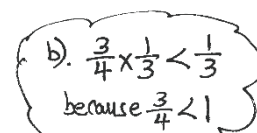 b). 3/4 × 1/3 < 1/3
because 3/4 < 1